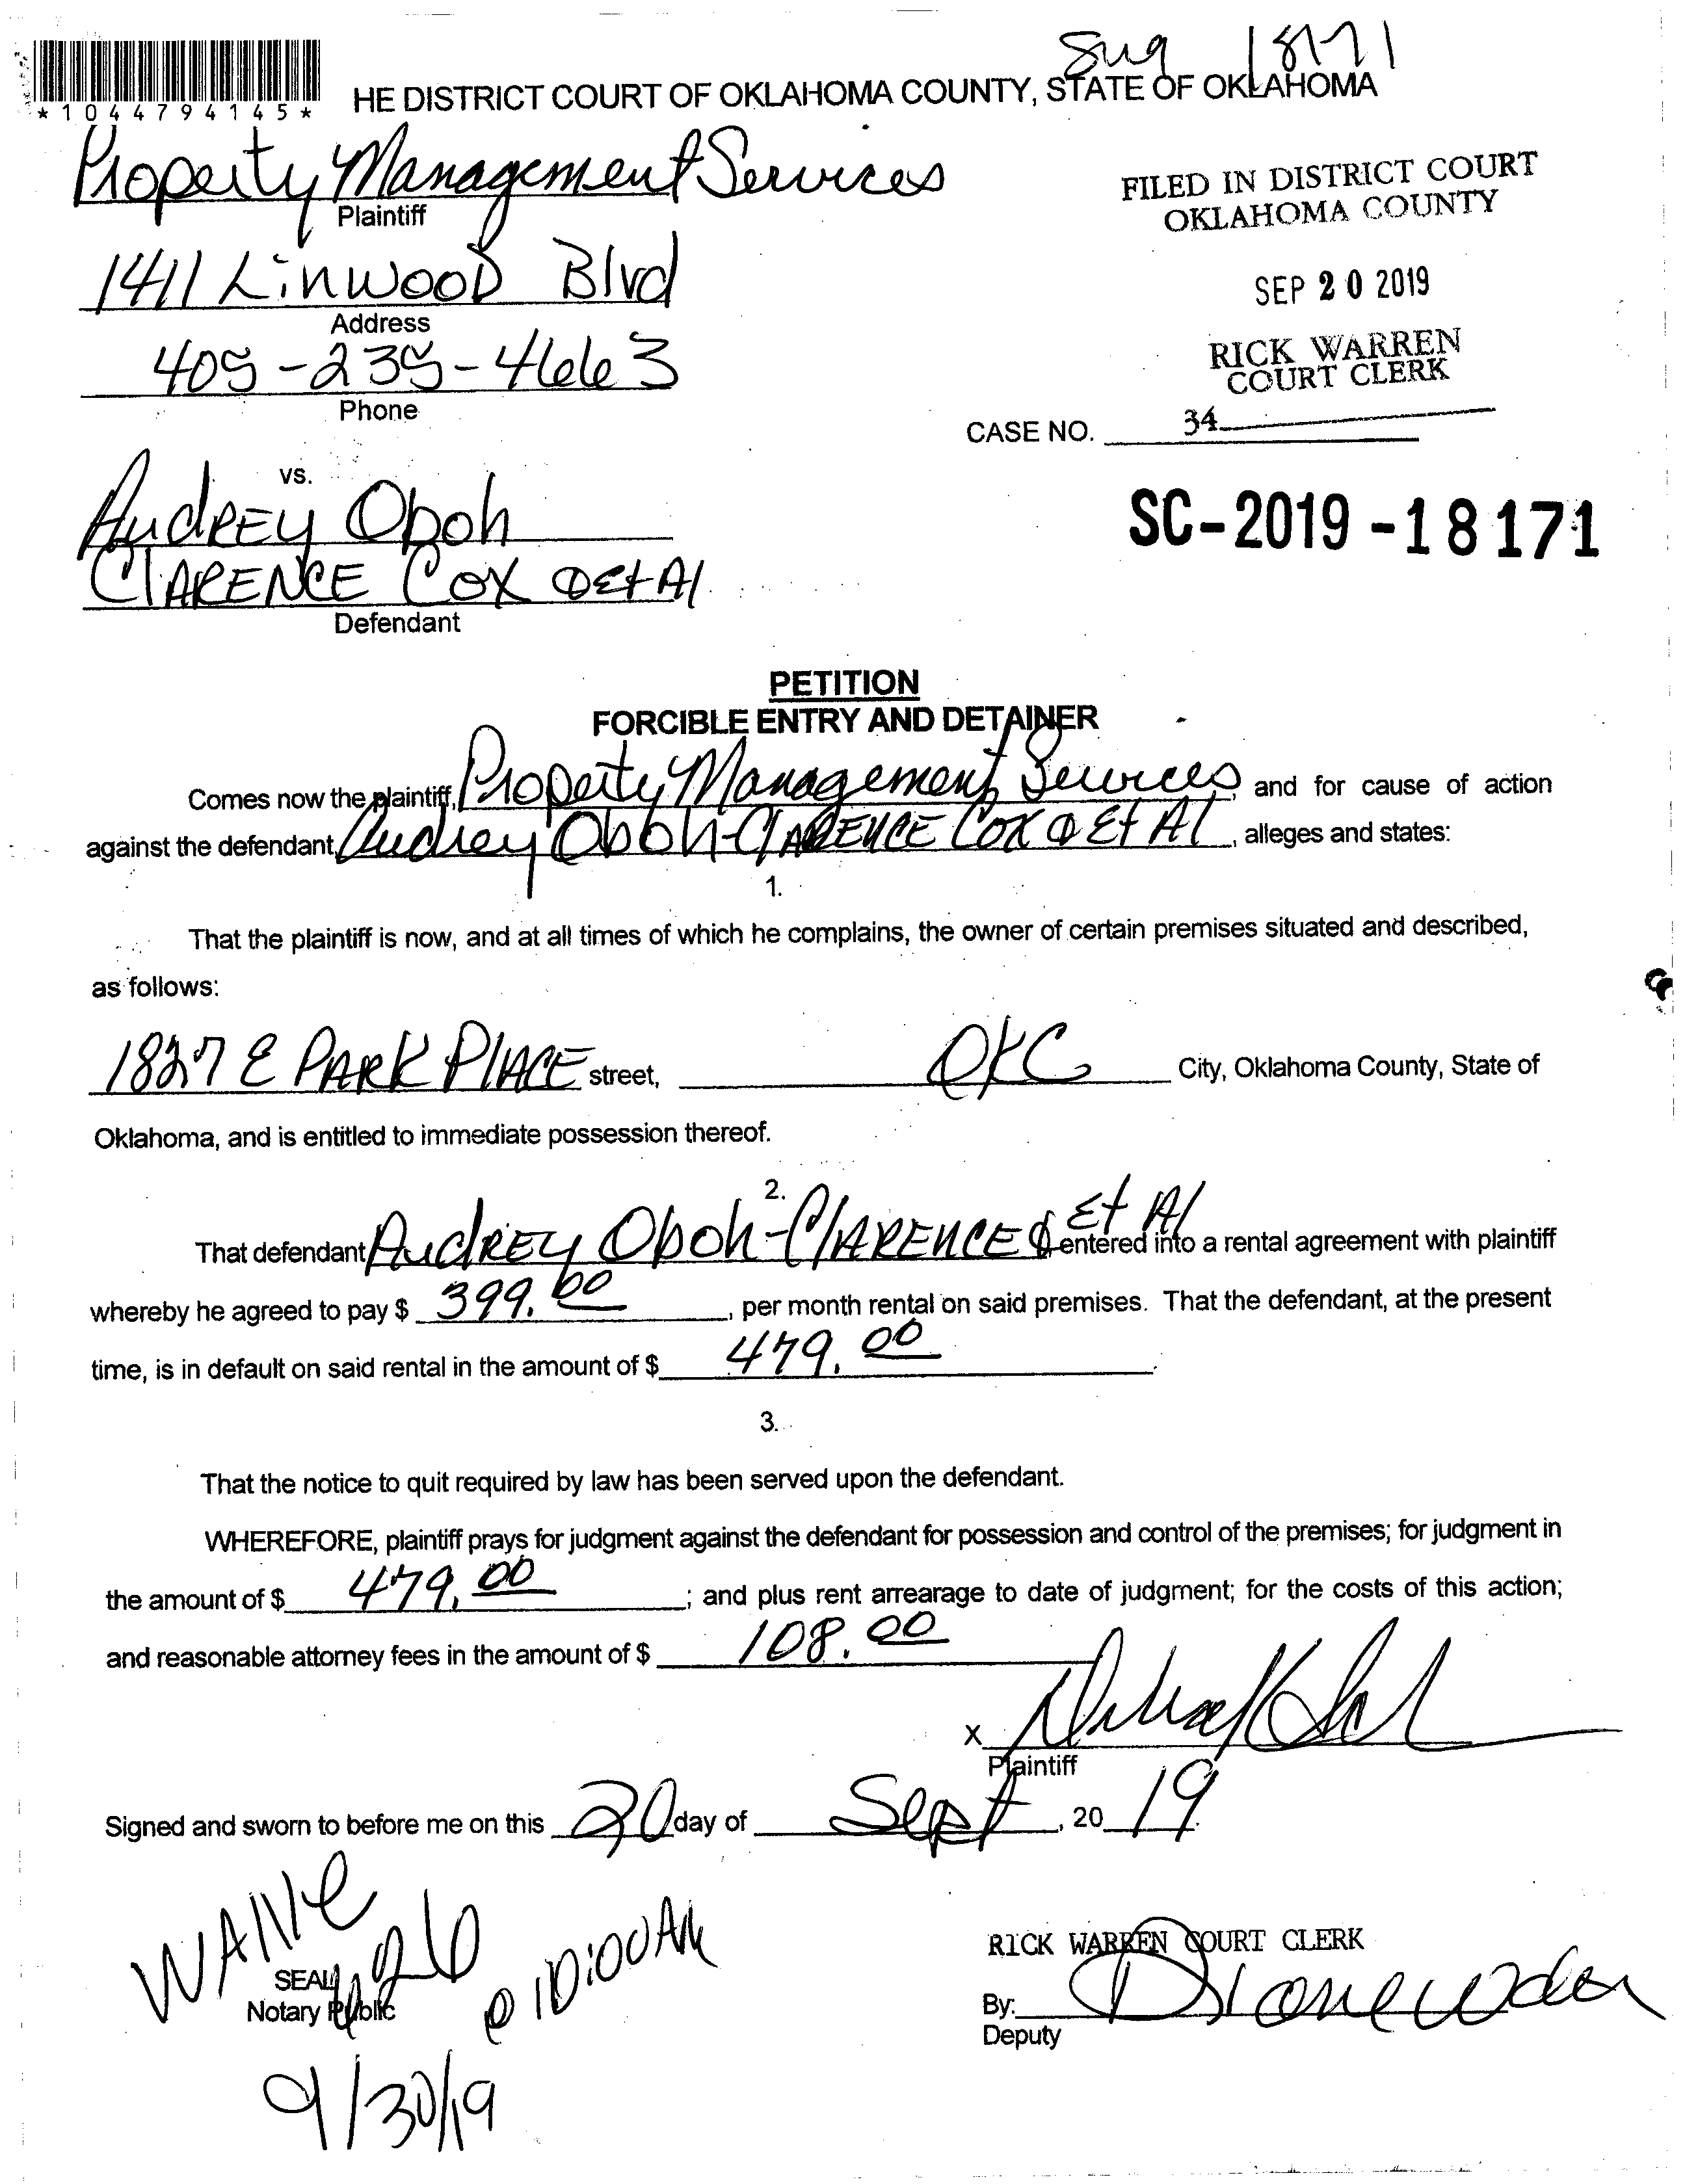 *1044794145*
HE DISTRICT COURT OF OKLAHOMA COUNTY, STATE OF OKLAHOMA
Property Management Services
Plaintiff
FILED IN DISTRICT COURT
OKLAHOMA COUNTY
1411 Linwood Blvd
Address
SEP 20 2019
405-235-4663
Phone
RICK WARREN
COURT CLERK
34
CASE NO.
vs.
Audrey Oboh
SC-2019-18171
Clarence Cox Et Al
Defendant
PETITION
FORCIBLE ENTRY AND DETAINER
Comes now the plaintiff, Property Management Services, and for cause of action
against the defendant, Audrey Oboh-Clarence Cox Et Al, alleges and states:
1.
That the plaintiff is now, and at all times of which he complains, the owner of certain premises situated and described,
as follows:
1827 E Park Place street, OKC City, Oklahoma County, State of
Oklahoma, and is entitled to immediate possession thereof.
2.
That defendant Audrey Oboh-Clarence Et Al entered into a rental agreement with plaintiff
whereby he agreed to pay $ 399.00, per month rental on said premises. That the defendant, at the present
time, is in default on said rental in the amount of $ 479.00.
3.
That the notice to quit required by law has been served upon the defendant.
WHEREFORE, plaintiff prays for judgment against the defendant for possession and control of the premises; for judgment in
the amount of $ 479.00; and plus rent arrearage to date of judgment; for the costs of this action;
and reasonable attorney fees in the amount of $ 108.00
X
Plaintiff
Signed and sworn to before me on this 20 day of Sept, 2019.
WAIVE
RICK WARREN COURT CLERK
SEAL
Notary Public
@ 10:00AM
By:
Deputy
9/30/19